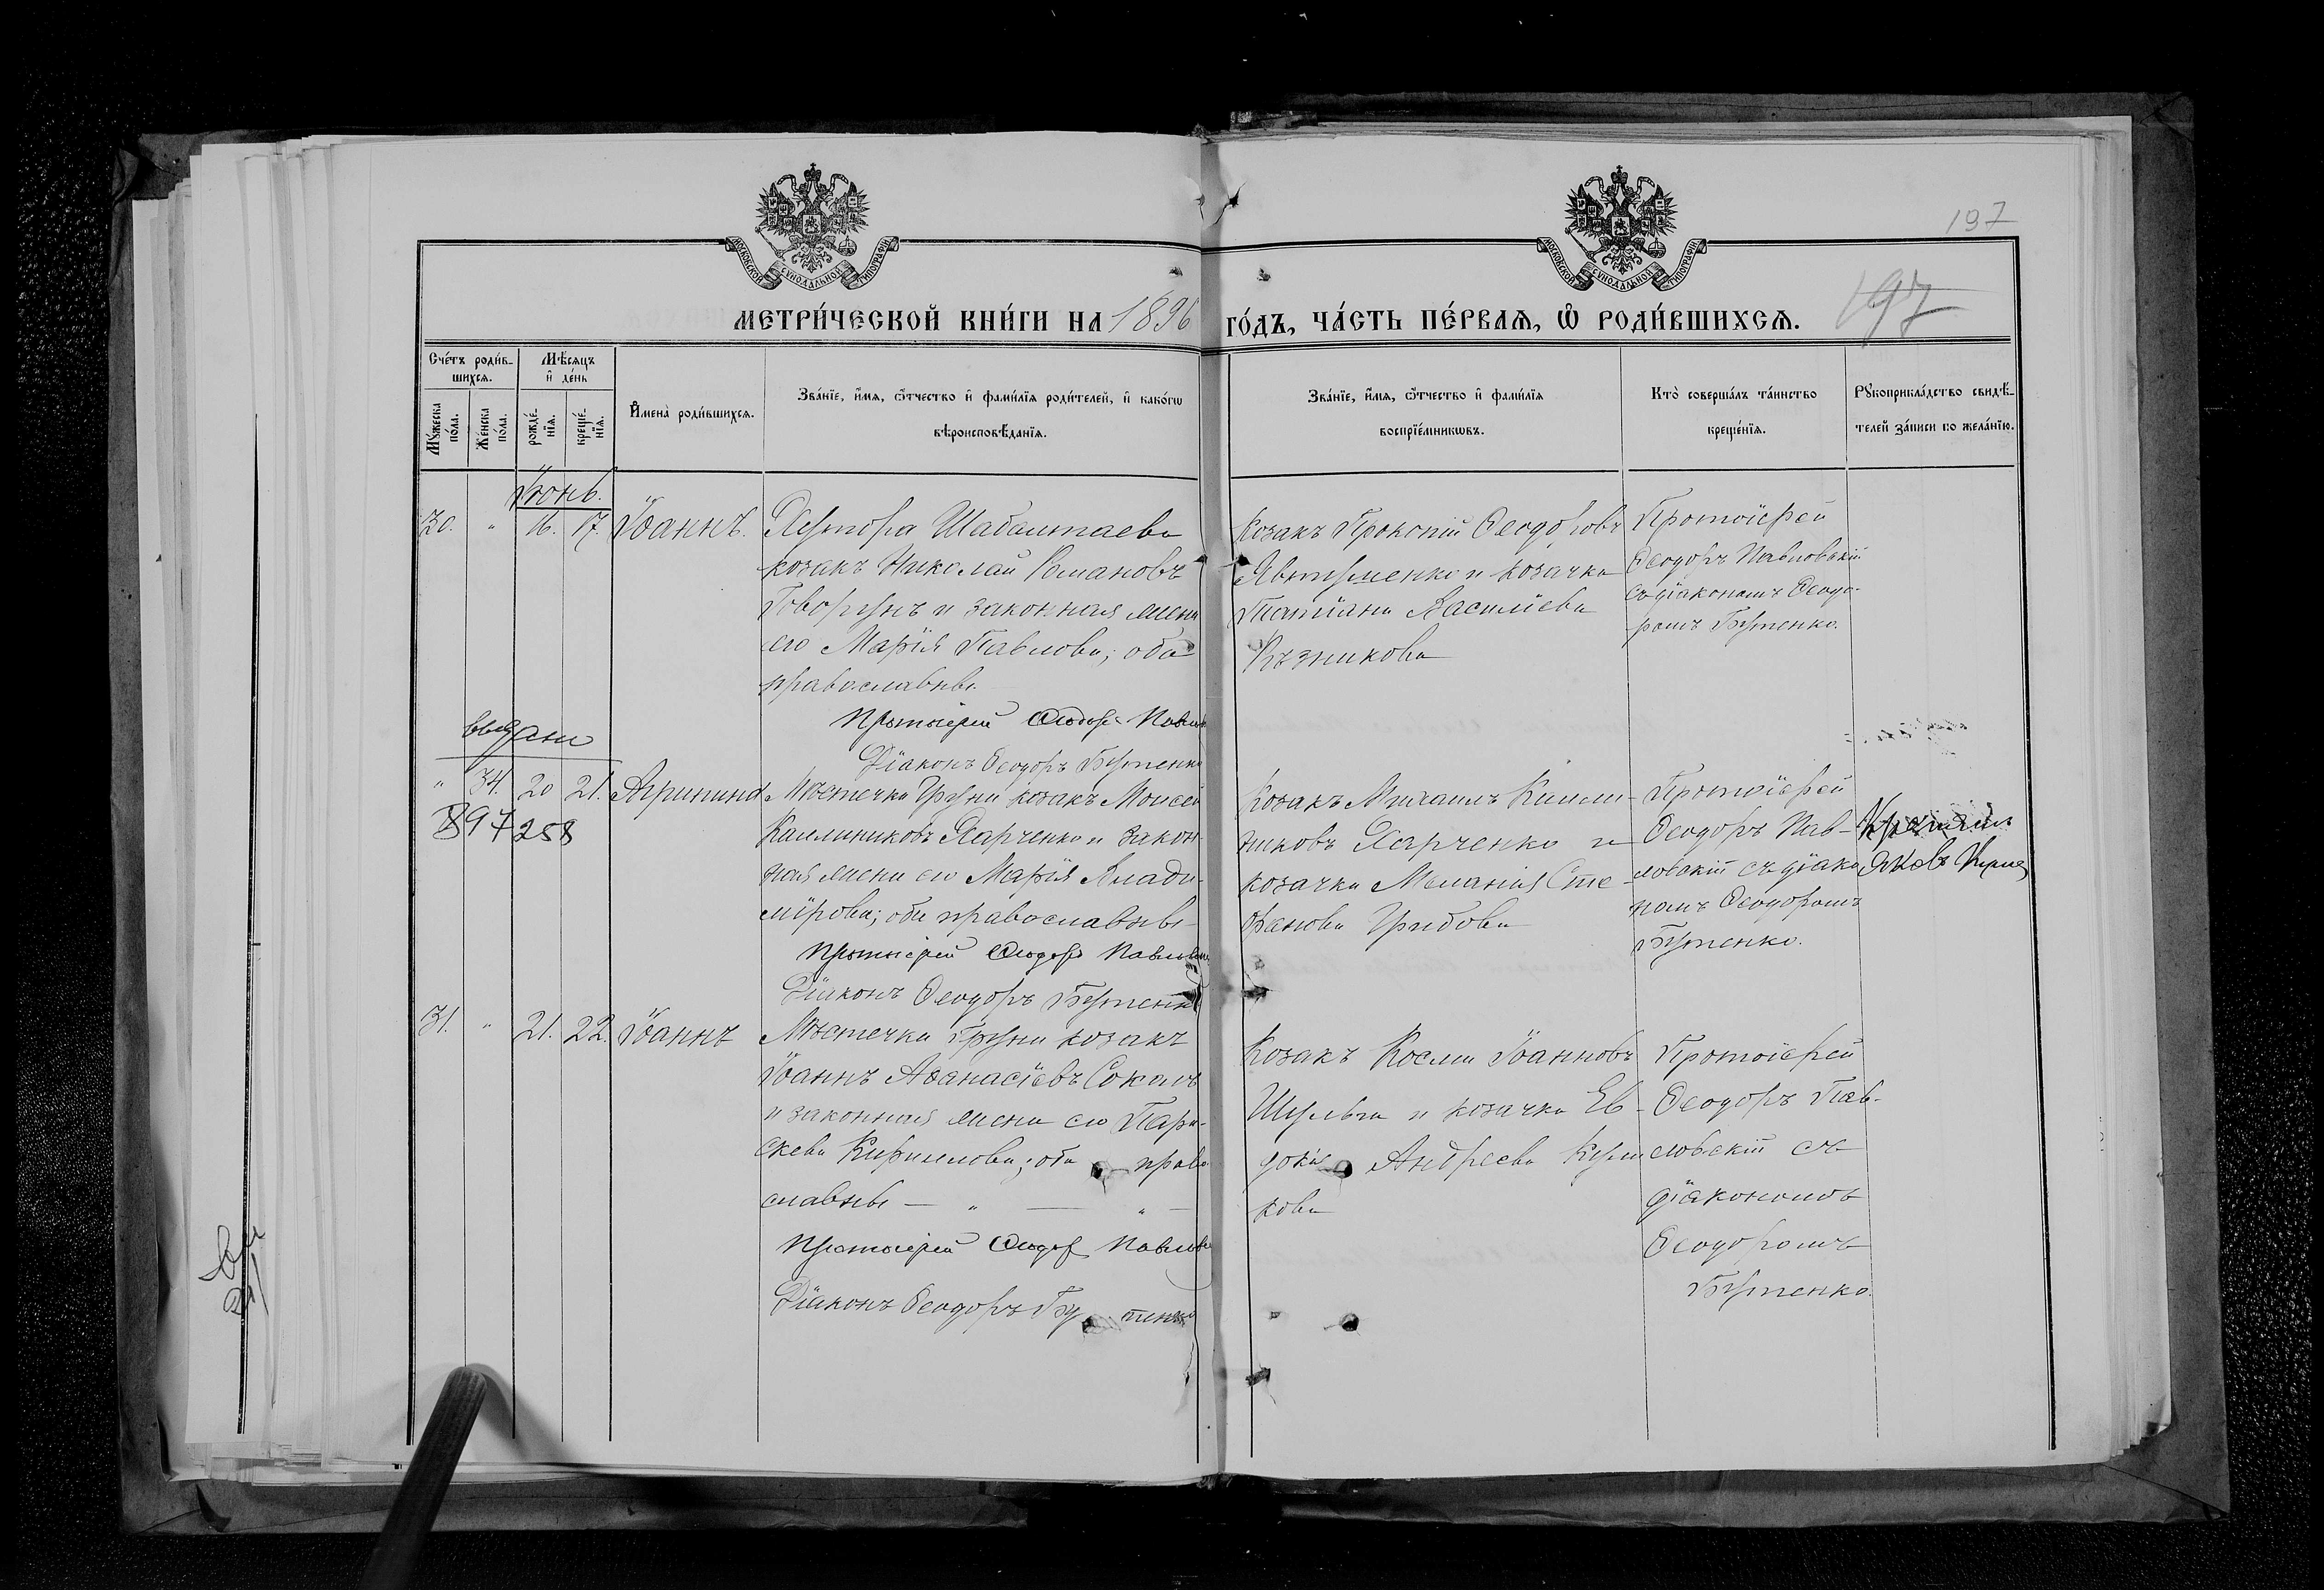 197
МОСКОВСКОЙ СУНОДАЛЬНОЙ ТИПОГРАФІИ
МОСКОВСКОЙ СУНОДАЛЬНОЙ ТИПОГРАФІИ
МЕТРИ́ЧЕСКОЙ КНИ́ГИ НА 1896 ГО́ДЪ, ЧА́СТЬ ПЕ́РВАЯ, Ѡ РОДИ́ВШИХСѦ.
197
Сче́тъ роди́в-
шихсѧ.
Мѣ́сѧцъ
и҆ де́нь
Мꙋ́жеска по́ла.
Же́нска по́ла.
рожде́нїѧ.
креще́нїѧ.
И҆мена̀ роди́вшихсѧ.
Зва́нїе, и҆́мѧ, ѻ҆́тчество и҆ фами́лїѧ роди́телей, и҆ како́гѡ
вѣроисповѣ́данїѧ.
Зва́нїе, и҆́мѧ, ѻ҆́тчество и҆ фами́лїѧ
воспрїе́мникѡвъ.
Кто̀ соверша́лъ та́инство
креще́нїѧ.
Рꙋкоприкла́дство свидѣ́-
телей за́писи по жела́нїю.
Іюнь.
30. " 16. 17. Іоаннъ.
Хутора Шабалтаева
козакъ Николай Романовъ
Говорунъ и законная жена
его Марія Павлова; оба
православны.
Протоіерей Ѳеодоръ Павлов
Діаконъ Ѳеодоръ Бутенко
Козакъ Прокопій Ѳеодоровъ
Явтушенко и козачка
Татіана Василіева
Протоіерей
Ѳеодоръ Павловскій
съ діакономъ Ѳеодо-
ромъ Бутенко.
выдано
" 34. 20 21. Агрипина
897 258
Мѣстечка Груни козакъ Моисей
Каллиниковъ Харченко и закон-
ная жена его Марія Влади-
мірова; оба православны
Протоіерей Ѳеодоръ Павловскій
Діаконъ Ѳеодоръ Бутенко
Козакъ Михаилъ Калли-
никовъ Харченко и
козачка Меланія Сте-
фанова Грибова
Протоіерей
Ѳеодоръ Пав-
ловскій съ діако-
номъ Ѳеодоромъ
Бутенко.
Яковъ
31. " 21. 22. Іоаннъ
Мѣстечка Груни козакъ
Іоаннъ Аѳанасіевъ Соколъ
и законная жена его Пара-
скева Кириллова; оба право
славны — " — " —
Протоіерей Ѳеодоръ Павловс
Діаконъ Ѳеодоръ Бутенко
Козакъ Косма Іоанновъ
Шульга и козачка Ев-
докія Андреева
кова
Протоіерей
Ѳеодоръ Пав-
ловскій съ
діакономъ
Ѳеодоромъ
Бутенко.